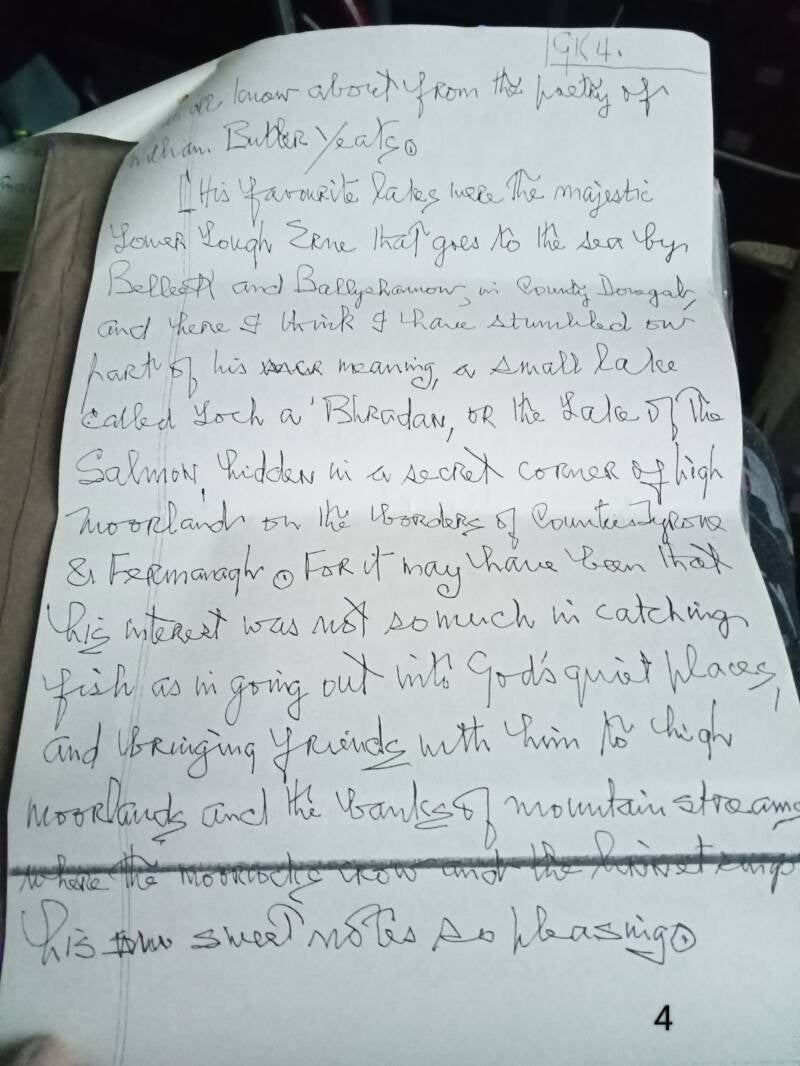 GK4.
are know about from the poetry of
William Butler Yeats.
[His favourite lakes were the majestic
Lower Lough Erne that goes to the sea by
Belleek and Ballyshannon, in County Donegal,
and here I think I have stumbled on
part of his meaning, a small lake
called Loch a' Bhradan, or the Lake of the
Salmon, hidden in a secret corner of high
moorland on the borders of Counties Tyrone
& Fermanagh. For it may have been that
his interest was not so much in catching
fish as in going out into God's quiet places,
and bringing friends with him to high
moorlands and the banks of mountain streams
where the moorcocks crow and the linnet sings
his sweet notes so pleasing.
4